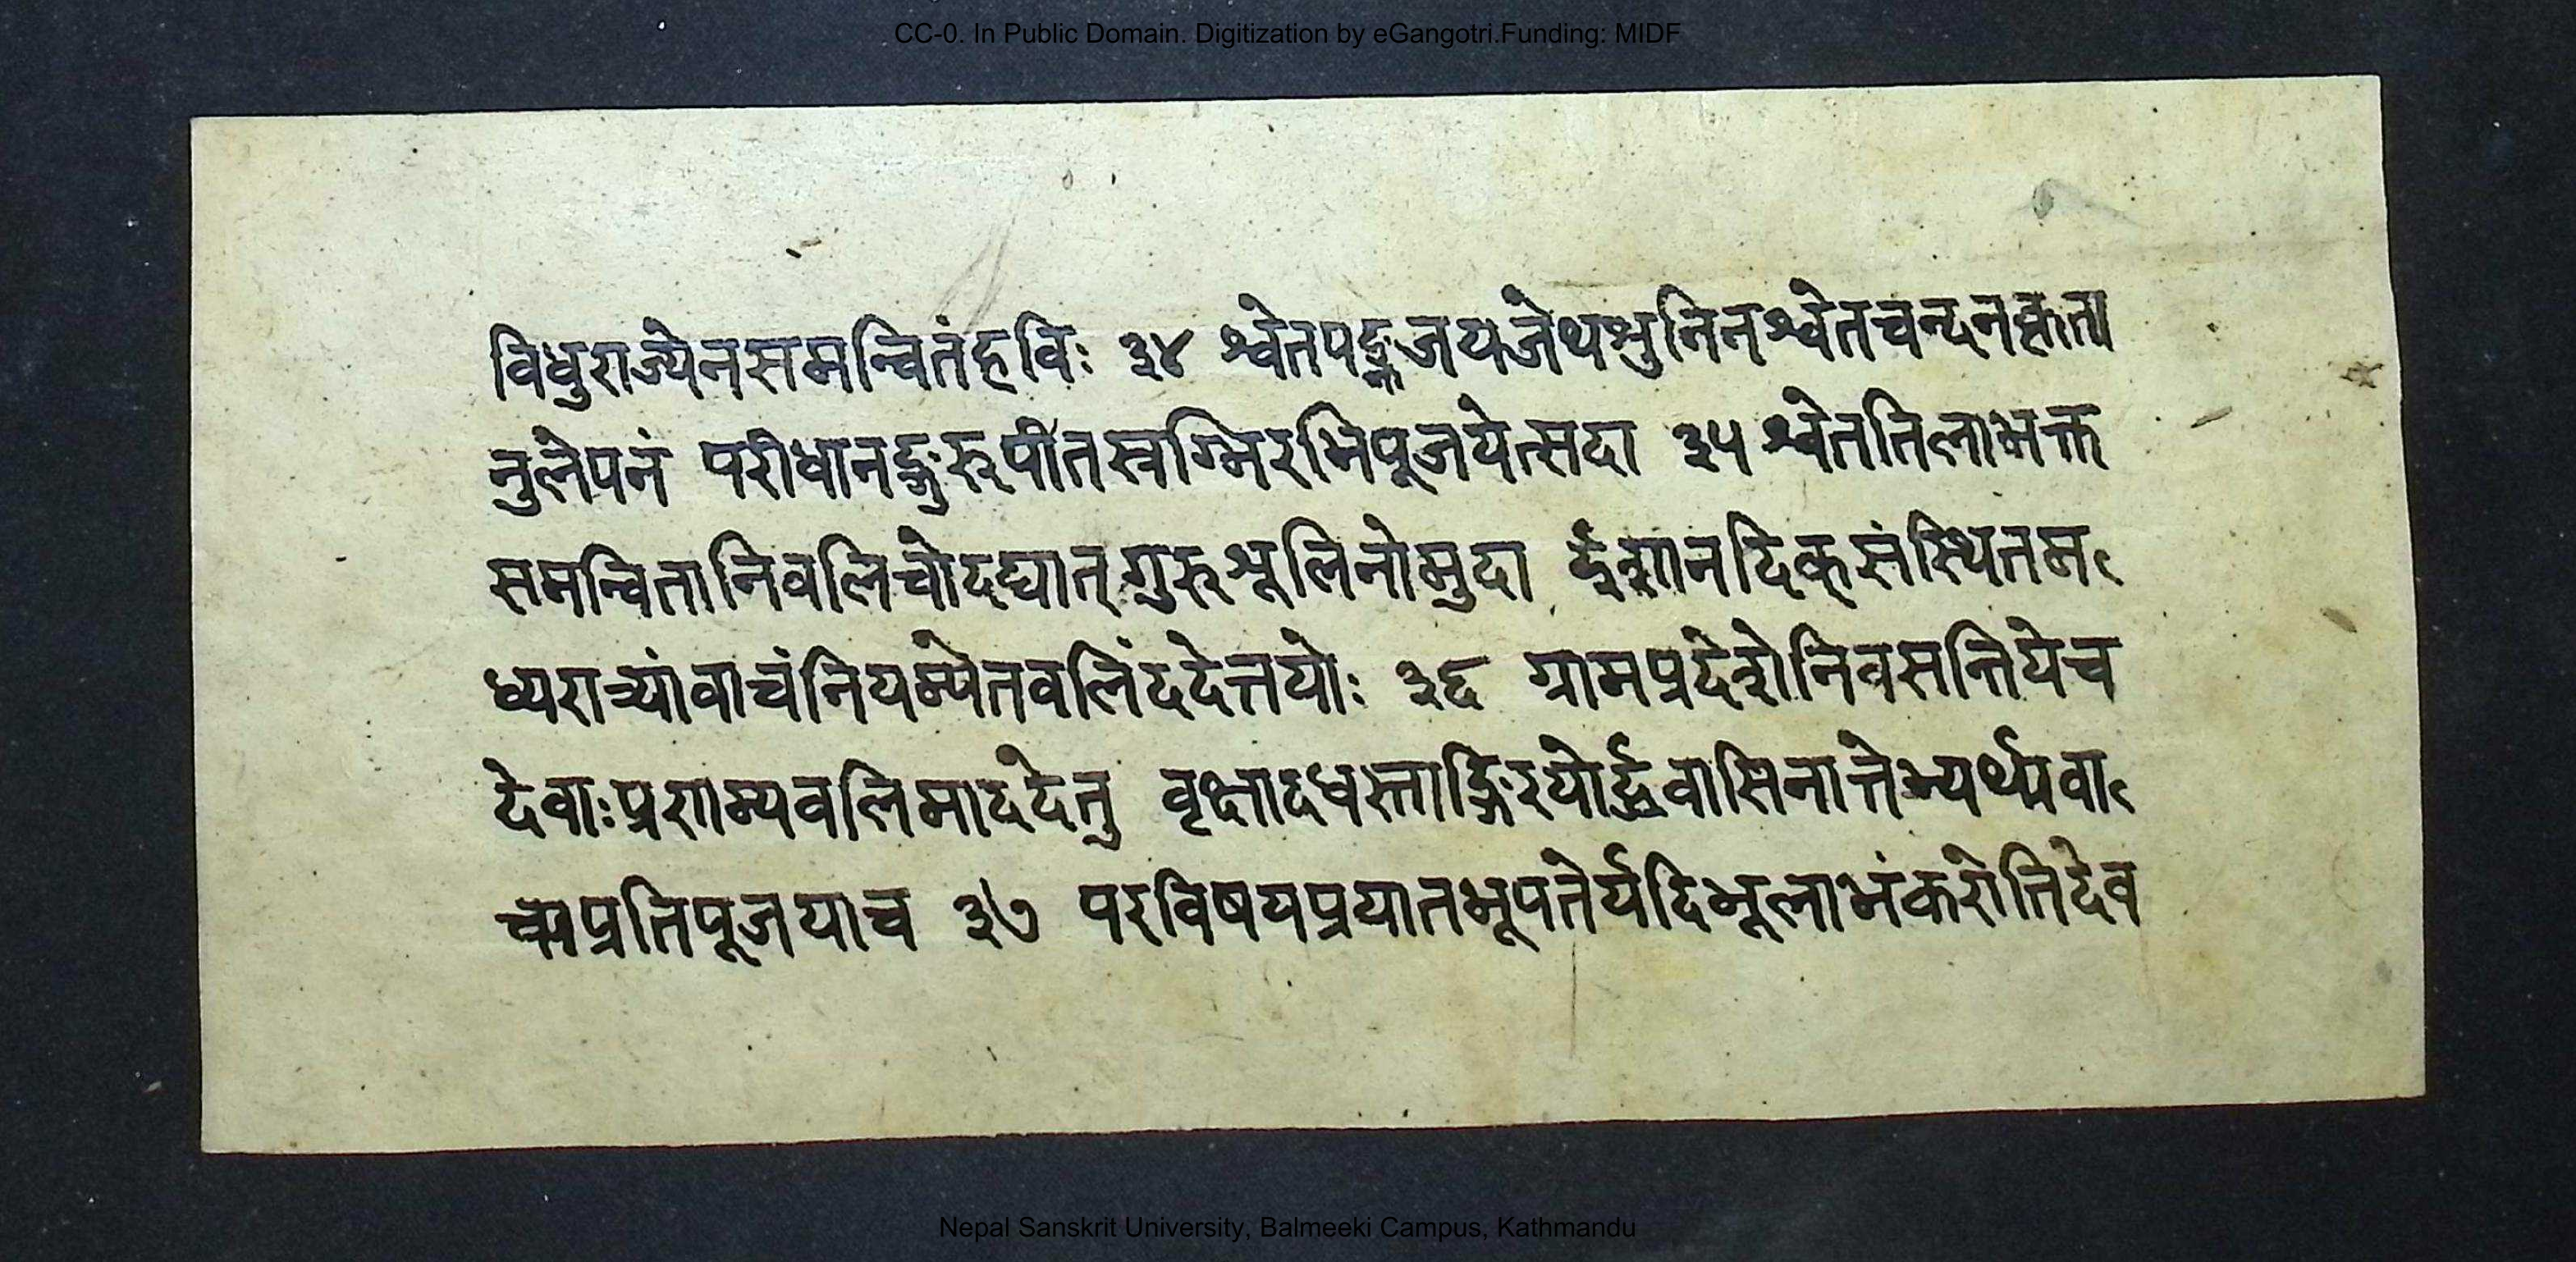 CC-0. In Public Domain. Digitization by eGangotri.Funding: MIDF
विधुराज्येनसमन्वितंहविः ३४ श्वेतपङ्कजयजेथश्रुनिनश्वेतचन्दनकृता
नुलेपनं परीधानङ्गुरूपीतस्रग्भिरभिपूजयेत्सदा ३५ श्वेततिलाभक्त
समन्वितानिवलिचोदद्यात्गुरुशूलिनोमुदा ईशानदिक्संस्थितम
ध्यरात्र्यांवाचंनियम्येतवलिंददेत्तयोः ३६ ग्रामप्रदेशेनिवसन्तियेच
देवाःप्रणम्यवलिमाददेतु वृक्षादधस्ताद्गिरयोर्द्धवासिनात्तेभ्यर्थ्यवा
च्यप्रतिपूजयाच ३७ परविषयप्रयातभूपतेर्यदिभूलाभंकरोतिदेव
Nepal Sanskrit University, Balmeeki Campus, Kathmandu